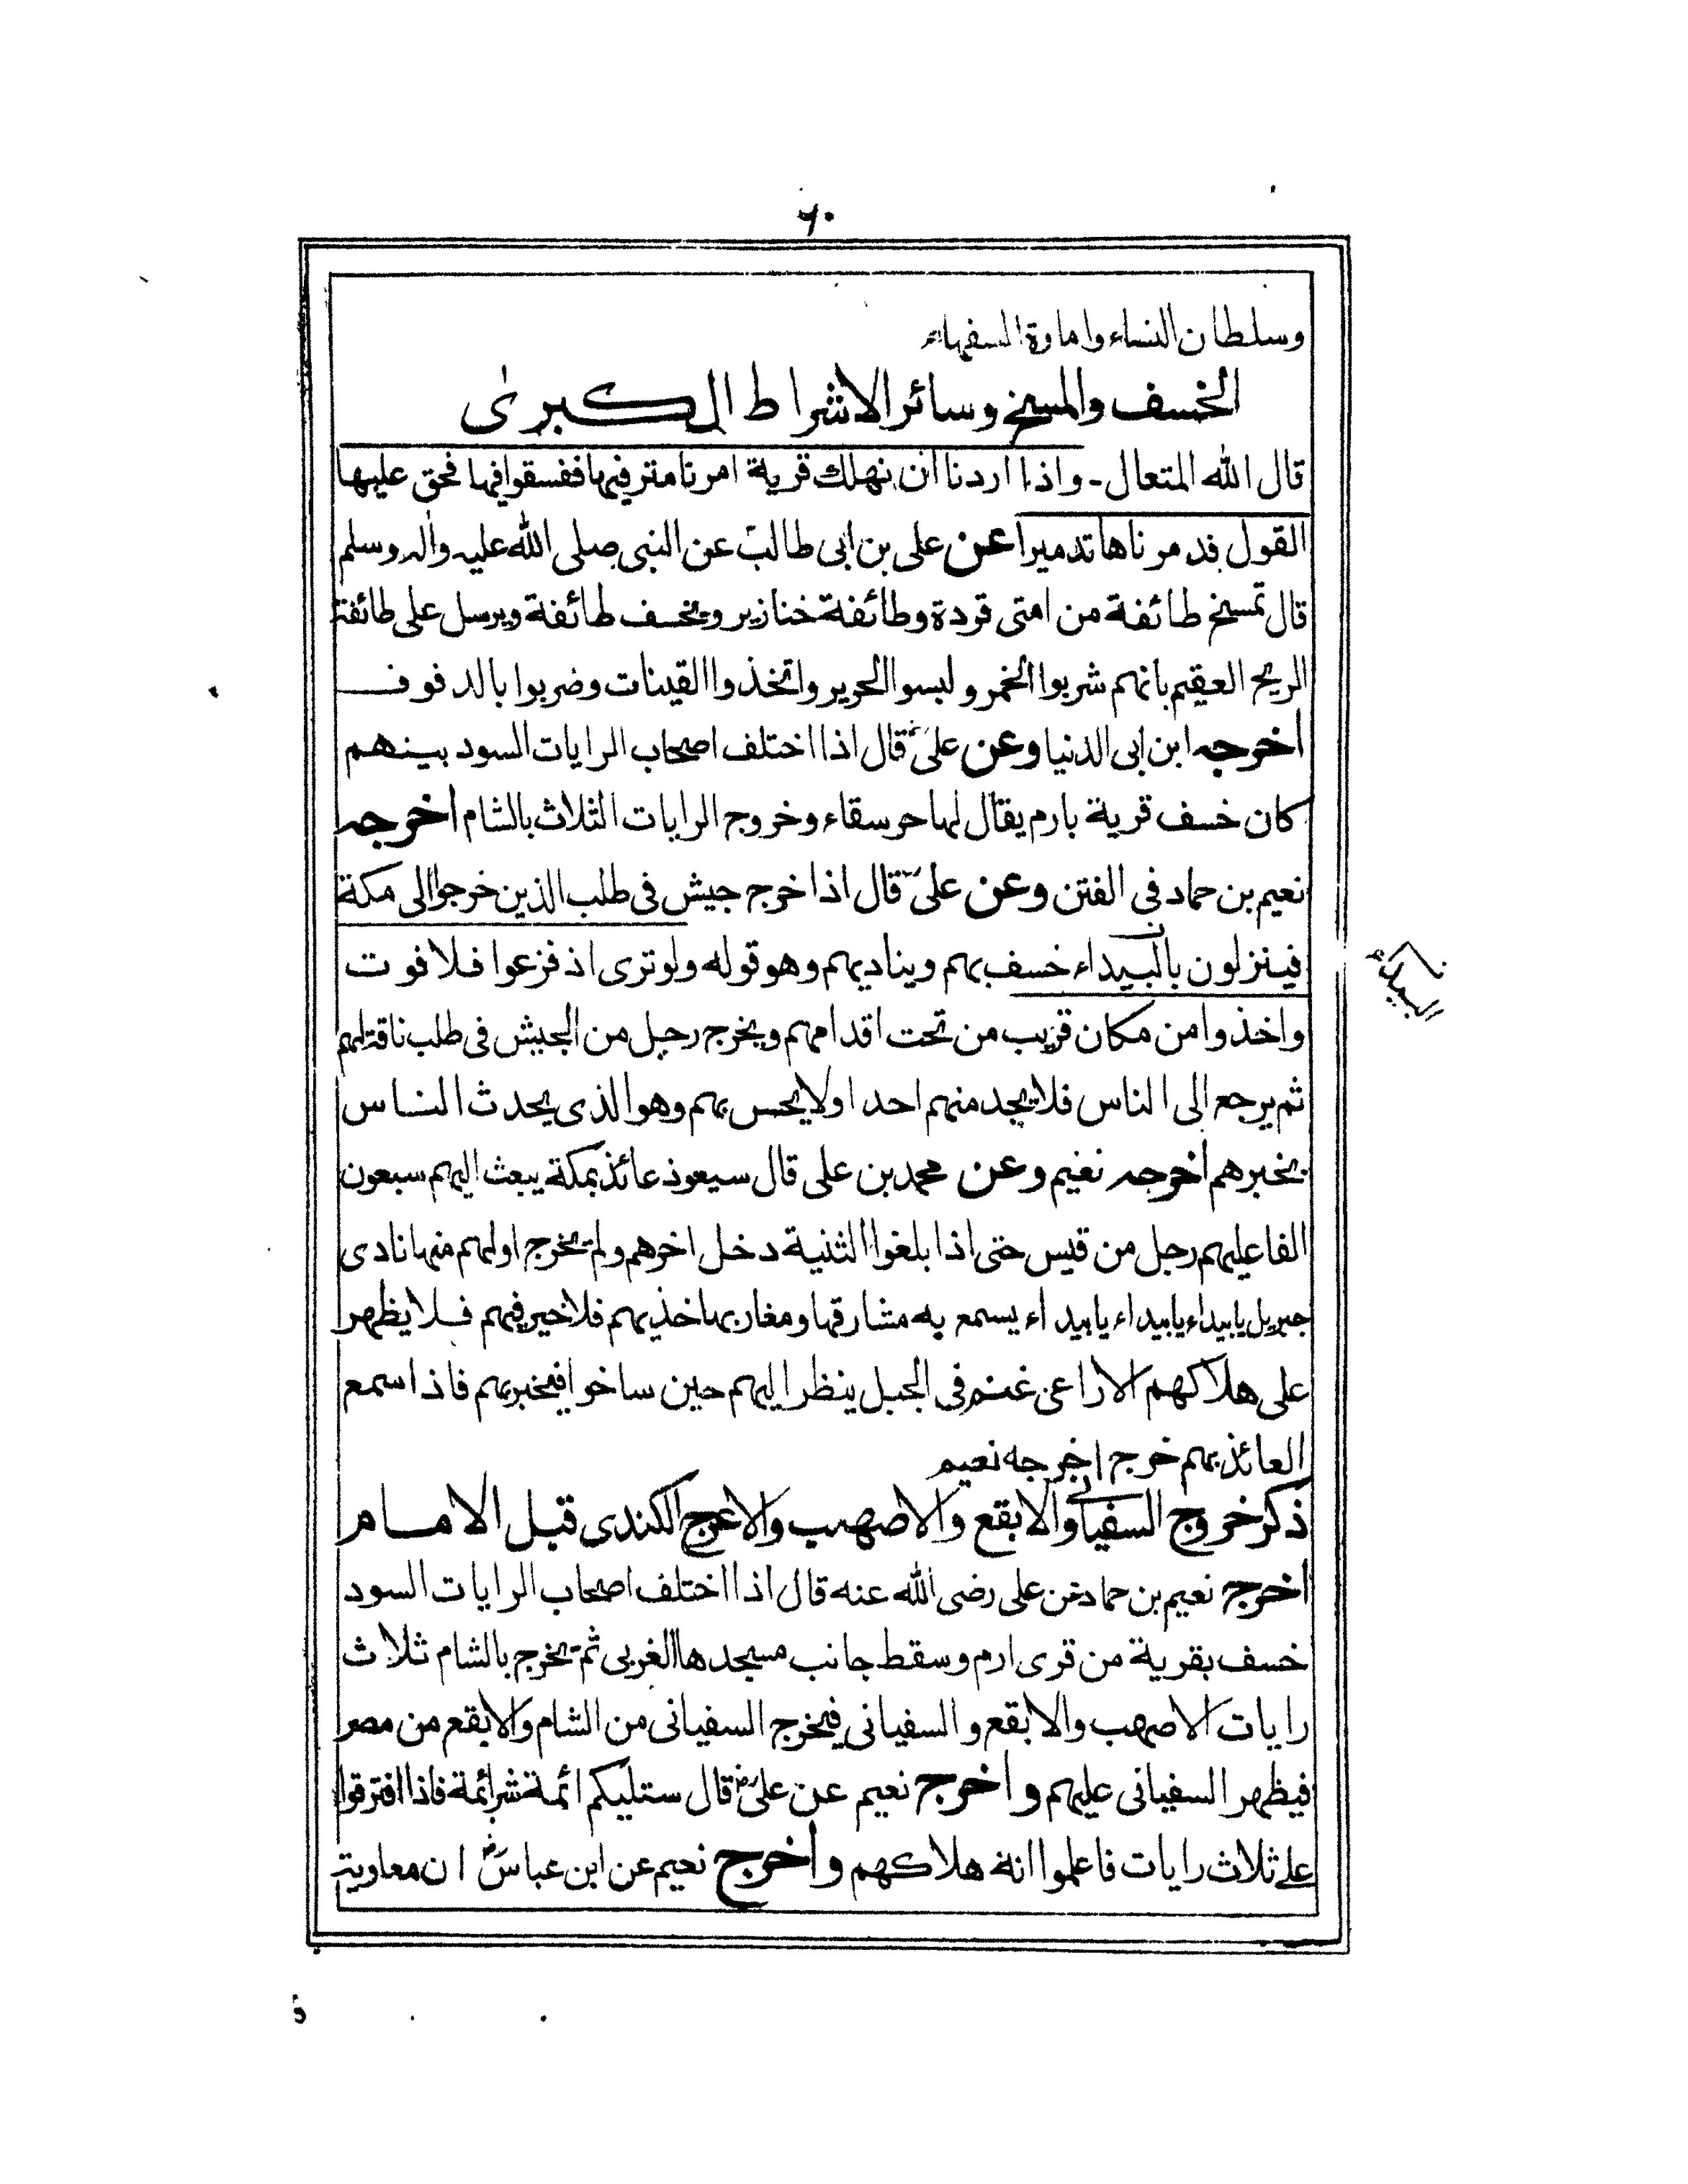 ٦٠
وسلطان النساء وامارة السفهاء
الخسف والمسخ وسائر الاشراط الكبرى
قال الله المتعال - واذا اردنا ان نهلك قرية امرنا مترفيها ففسقوا فيها فحق عليها
القول فدمرناها تدميرا عن على بن ابى طالب عن النبى صلى الله عليه واله وسلم
قال تمسخ طائفة من امتى قردة وطائفة خنازير ويخسف طائفة ويرسل على طائفة
الريح العقيم بانهم شربوا الخمر ولبسوا الحرير واتخذوا القينات وضربوا بالدفوف
اخرجه ابن ابى الدنيا وعن على قال اذا اختلف اصحاب الرايات السود بينهم
كان خسف قرية بارم يقال لها حرسقاء وخروج الرايات الثلاث بالشام اخرجه
نعيم بن حماد فى الفتن وعن على قال اذا خرج جيش فى طلب الذين خرجوا الى مكة
فينزلون بالبيداء خسف بهم ويناديهم وهو قوله ولو ترى اذ فزعوا فلا فوت
واخذوا من مكان قريب من تحت اقدامهم ويخرج رجل من الجيش فى طلب ناقة لهم
ثم يرجع الى الناس فلا يجد منهم احدا ولا يحس بهم وهو الذى يحدث الناس
بخبرهم اخرجه نعيم وعن محمد بن على قال سيعوذ عائذ بمكة يبعث اليهم سبعون
الفا عليهم رجل من قيس حتى اذا بلغوا الثنية دخل اخرهم ولم تخرج اولهم منها نادى
جبريل يا بيداء يا بيداء يا بيداء يسمع به مشارقها ومغاربها خذيهم فلا خير فيهم فلا يظهر
على هلاكهم الا راعى غنم فى الجبل ينظر اليهم حين ساخوا فيخبر بهم فاذا سمع
العائذ بهم خرج اخرجه نعيم
ذكر خروج السفيانى والابقع والاصهب والاعرج الكندى قبل الامام
اخرج نعيم بن حماد عن على رضى الله عنه قال اذا اختلف اصحاب الرايات السود
خسف بقرية من قرى ارم وسقط جانب مسجدها الغربى ثم تخرج بالشام ثلاث
رايات الاصهب والابقع والسفيانى فيخرج السفيانى من الشام والابقع من مصر
فيظهر السفيانى عليهم واخرج نعيم عن على رض قال ستليكم ائمة شر ائمة فاذا افترقوا
على ثلاث رايات فاعلموا انه هلاكهم واخرج نعيم عن ابن عباس رض ان معاوية